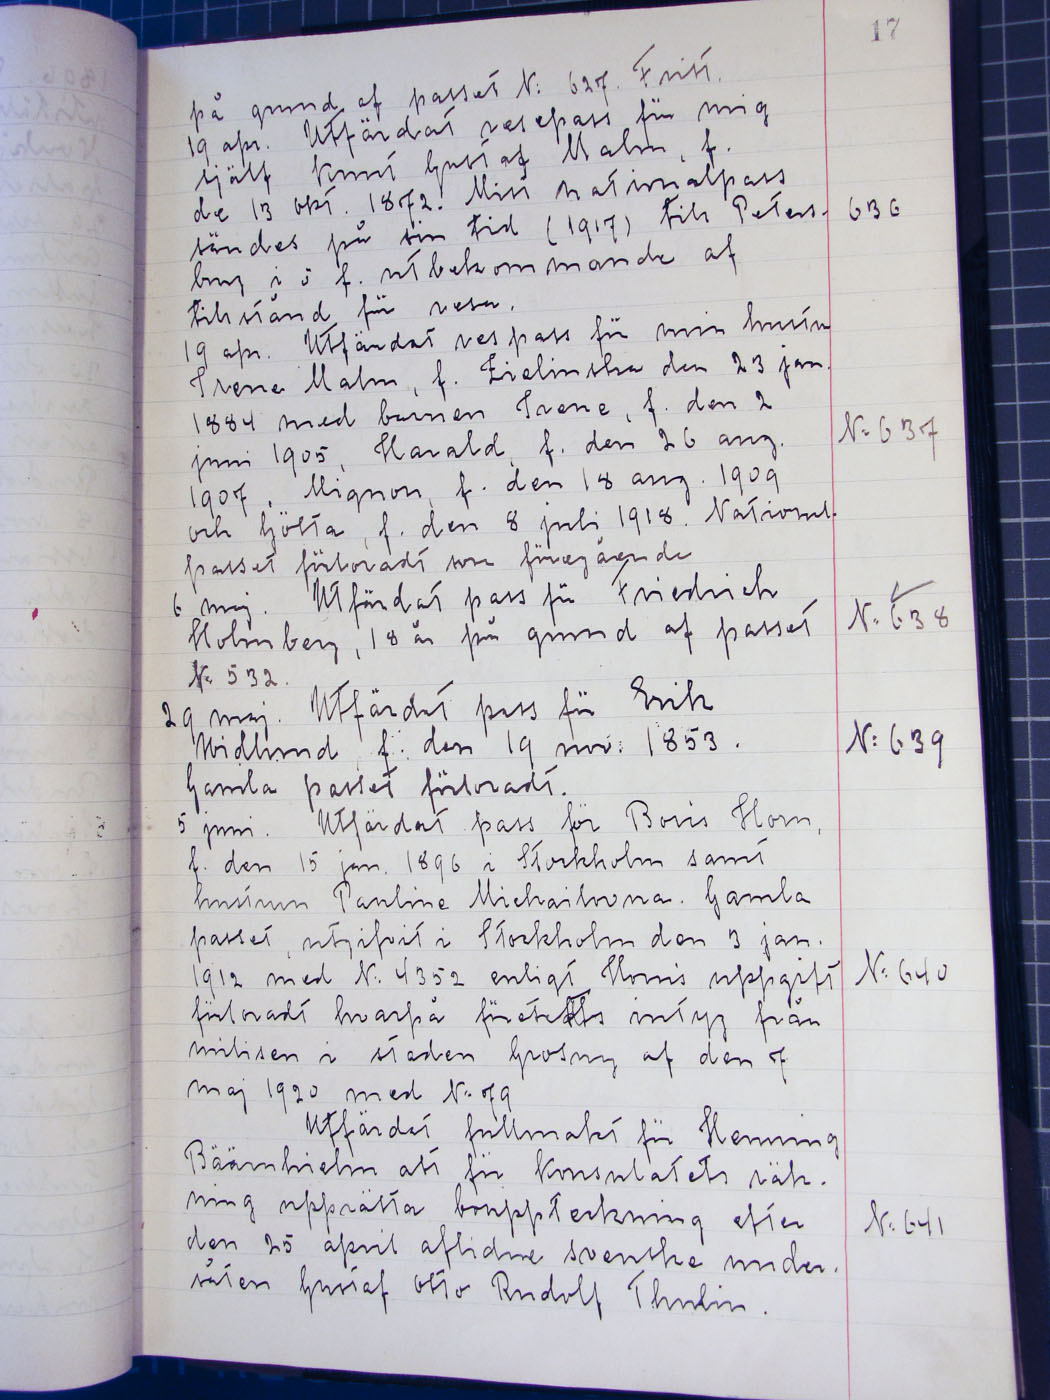 17
på grund af passet N: 627. Fritt.
19 apr. Utfärdat resepass för mig
själf Knut Gustaf Malm, f.
de 13 okt. 1872. Mitt nationalpass
sändes på sin tid (1917) till Peters- 636
burg i o f. utbekommande af
tillstånd för resa.
19 apr. Utfärdat respass för min hustru
Irene Malm, f. Zielinska den 23 jan.
1884 med barnen Irene, f. den 2
juni 1905, Harald, f. den 26 aug. N: 637
1907, Mignon, f. den 18 aug. 1909
och Gösta, f. den 8 juli 1918. National-
passet förloradt som föregående
6 maj. Utfärdat pass för Friedrich
Holmberg, 18 år på grund af passet N: 638
N: 532.
29 maj. Utfärdat pass för Erik
Widlund, f. den 19 nov. 1853. N: 639
Gamla passet förloradt.
5 juni. Utfärdat pass för Boris Horn,
f. den 15 jan. 1896 i Stockholm samt
hustrun Pauline Michailovna. Gamla
passet, utgifvit i Stockholm den 3 jan.
1912 med N: 4352 enligt Horns uppgift N: 640
förloradt hvarpå företetts intyg från
milisen i staden Grosny af den 7
maj 1920 med N: 79
Utfärdat fullmakt för Henning
Bäärnhielm att för Konsulatets räk-
ning upprätta bouppteckning efter N: 641
den 25 april aflidne svenske under-
såten Gustaf Otto Rudolf Thulin.